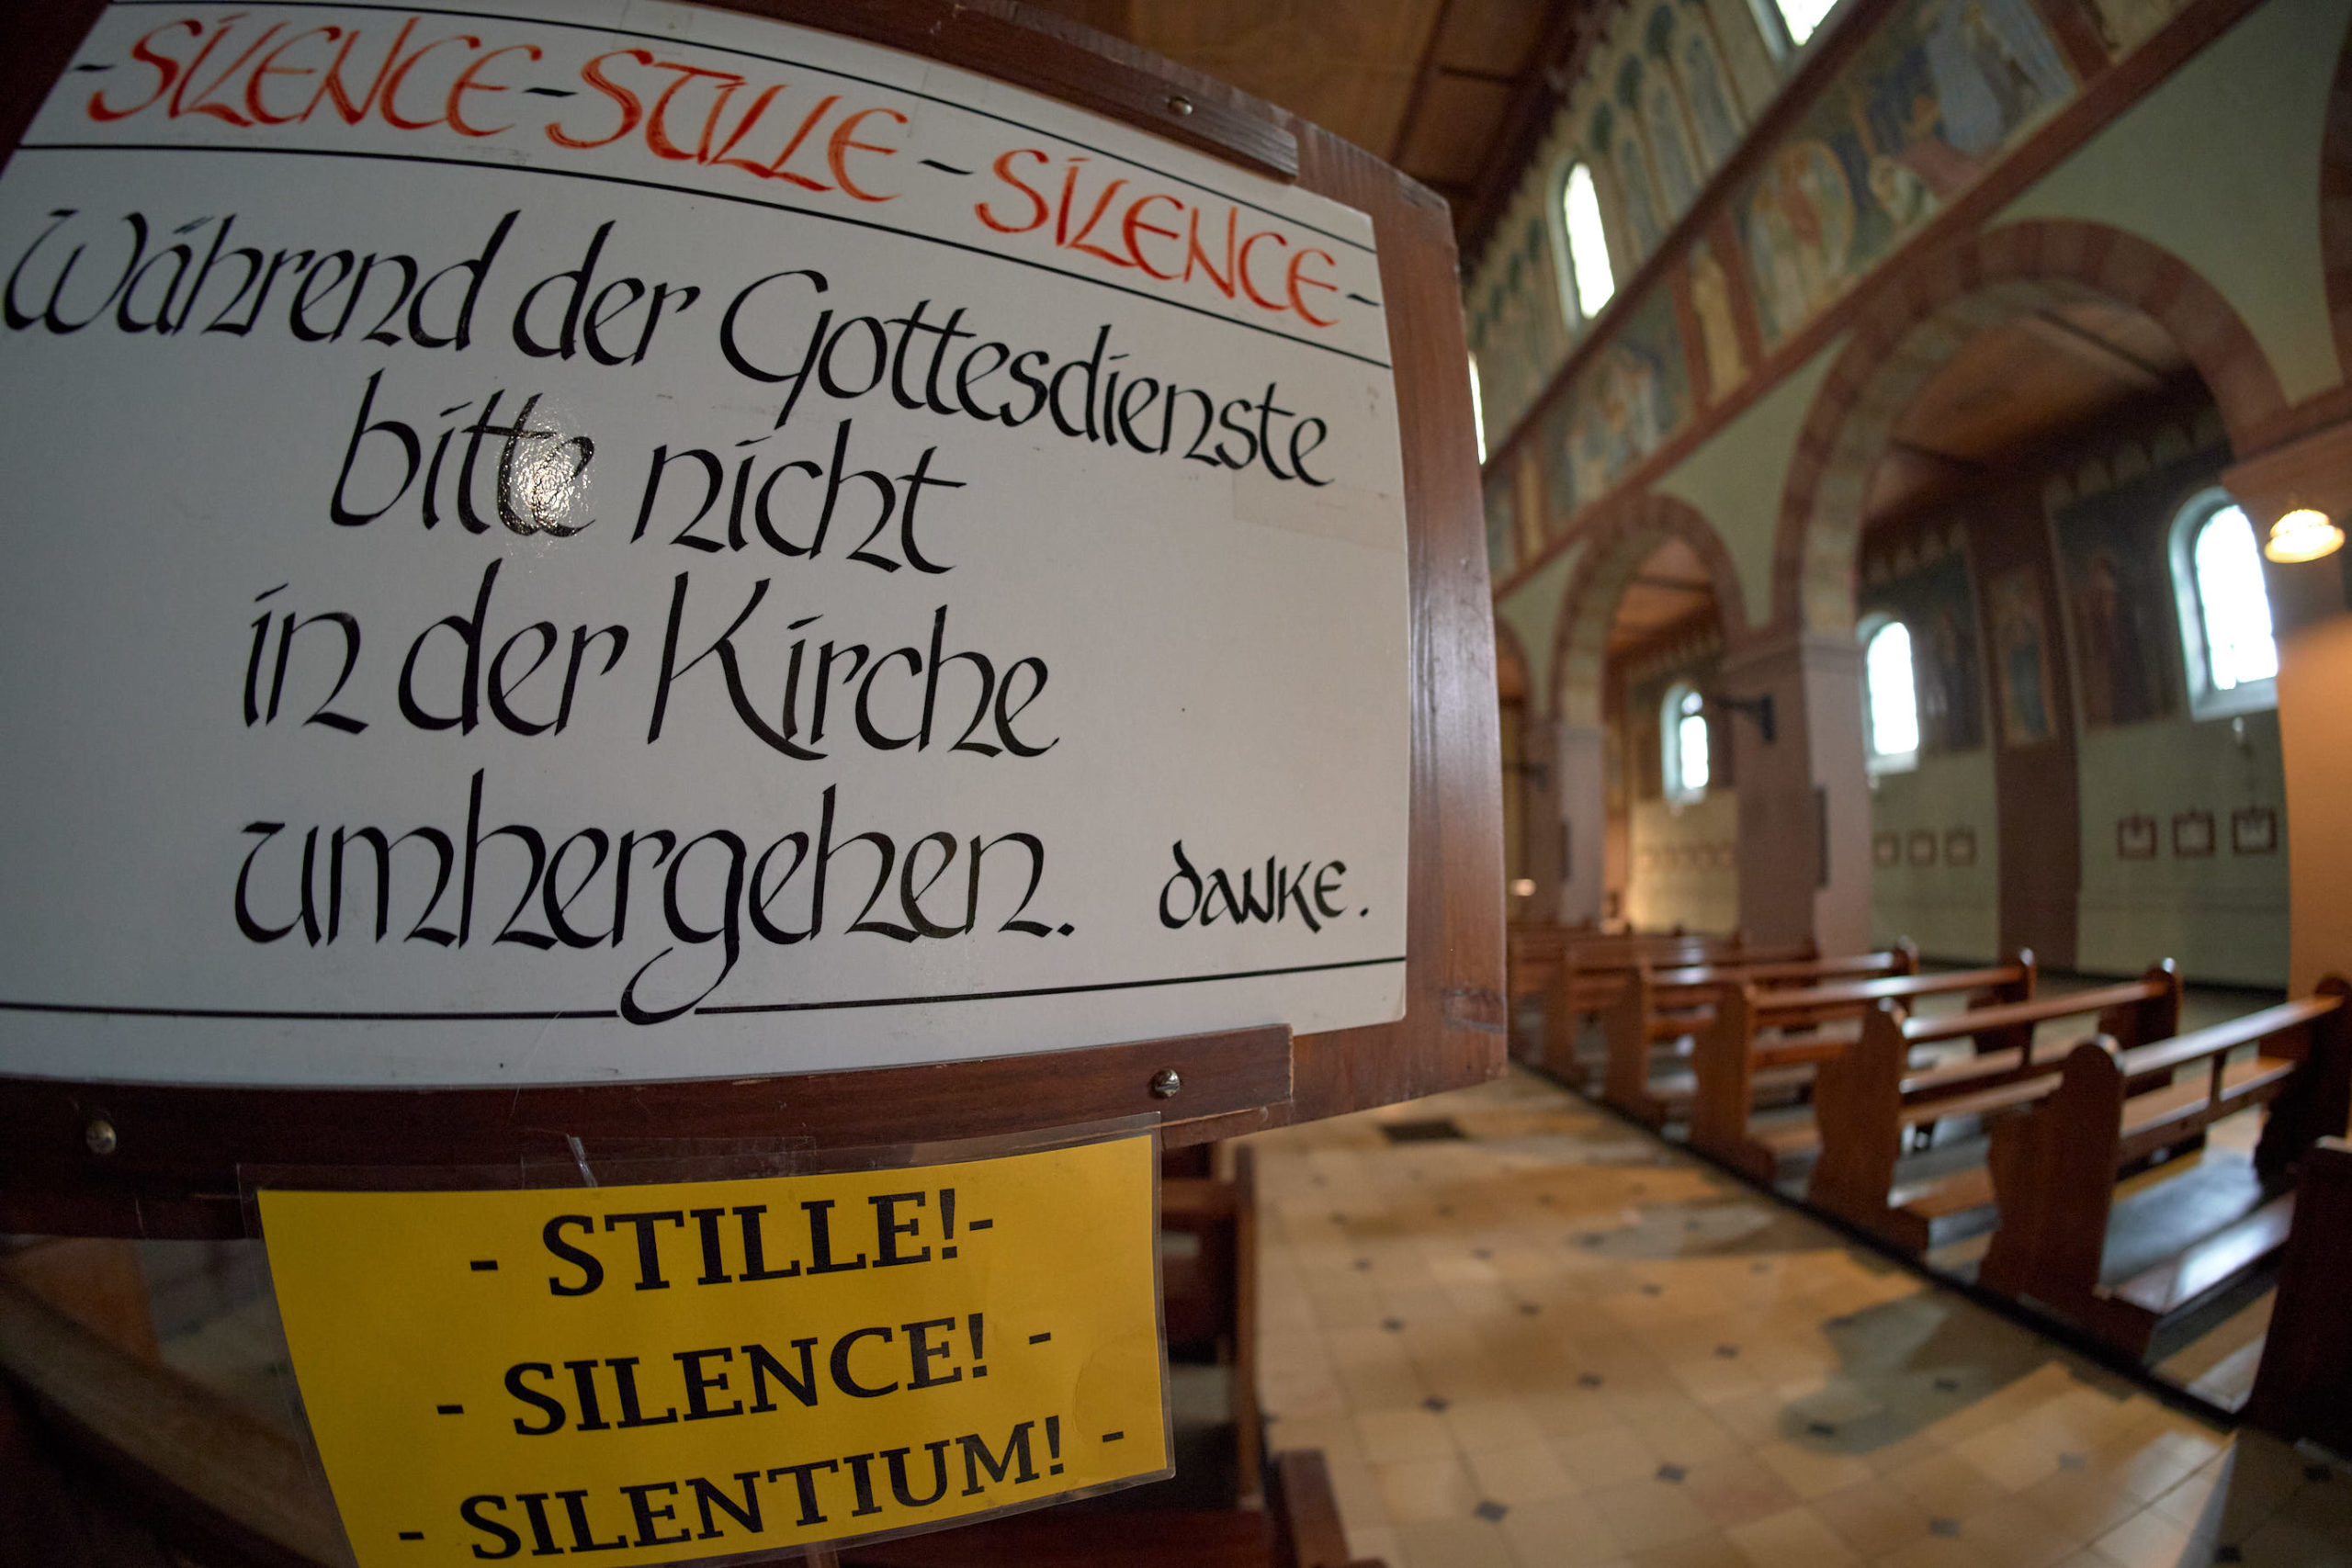 -SILENCE-STILLE-SILENCE-
Während der Gottesdienste
bitte nicht
in der Kirche
umhergehen. DANKE.
- STILLE!-
- SILENCE! -
- SILENTIUM! -